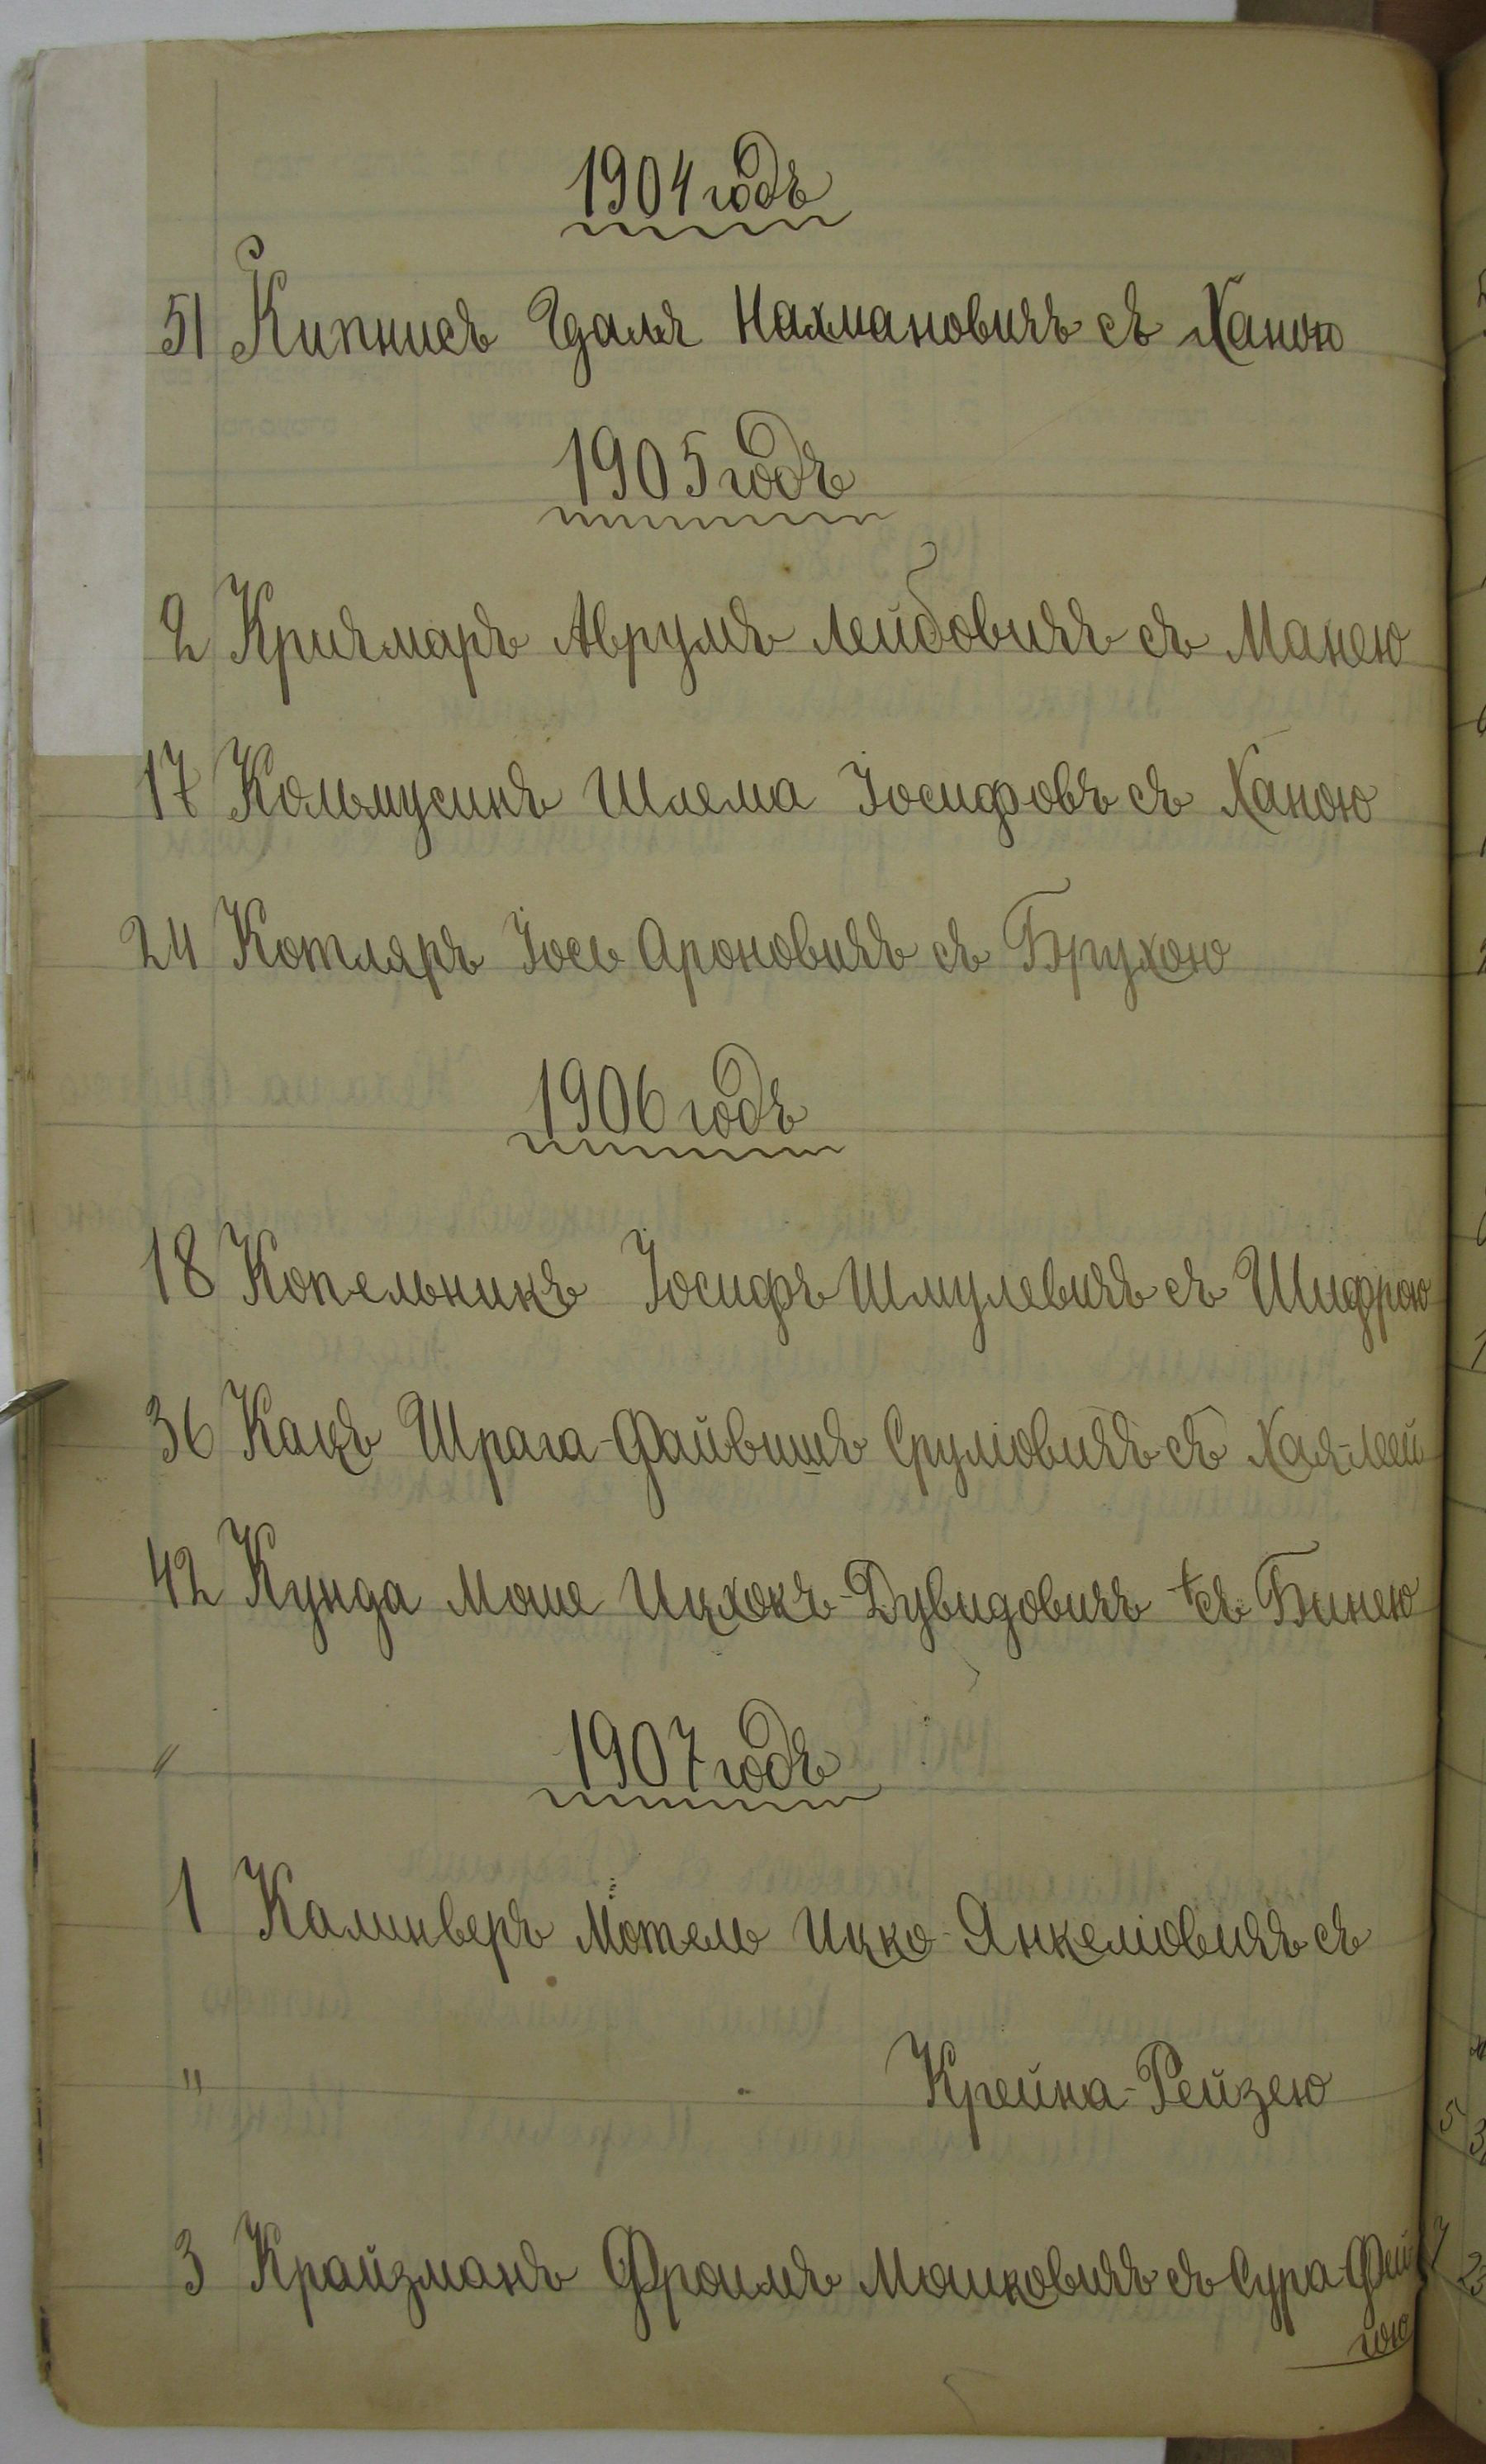 1904 годъ
51 Кипнисъ Гдаля Нахмановичъ съ Ханою
1905 годъ
2 Кричмаръ Аврумъ Лейбовичъ съ Манею
17 Кольмусинъ Шлема Іосифовъ съ Ханою
24 Котляръ Іось Ароновичъ съ Брухою
1906 годъ
18 Копельникъ Іосифъ Шмулевичъ съ Шифрою
36 Кацъ Шрага-Файвишъ Сруліовичъ съ Хая-Леей
42 Кунда Моше Ицхокъ-Дувидовичъ съ Бинею
" 1907 годъ
1 Калинверъ Мотель Ицко-Янкеліовичъ съ
" Крейна-Рейзею
3 Крайзманъ Фроимъ Мошковичъ съ Сура-Фей
гою